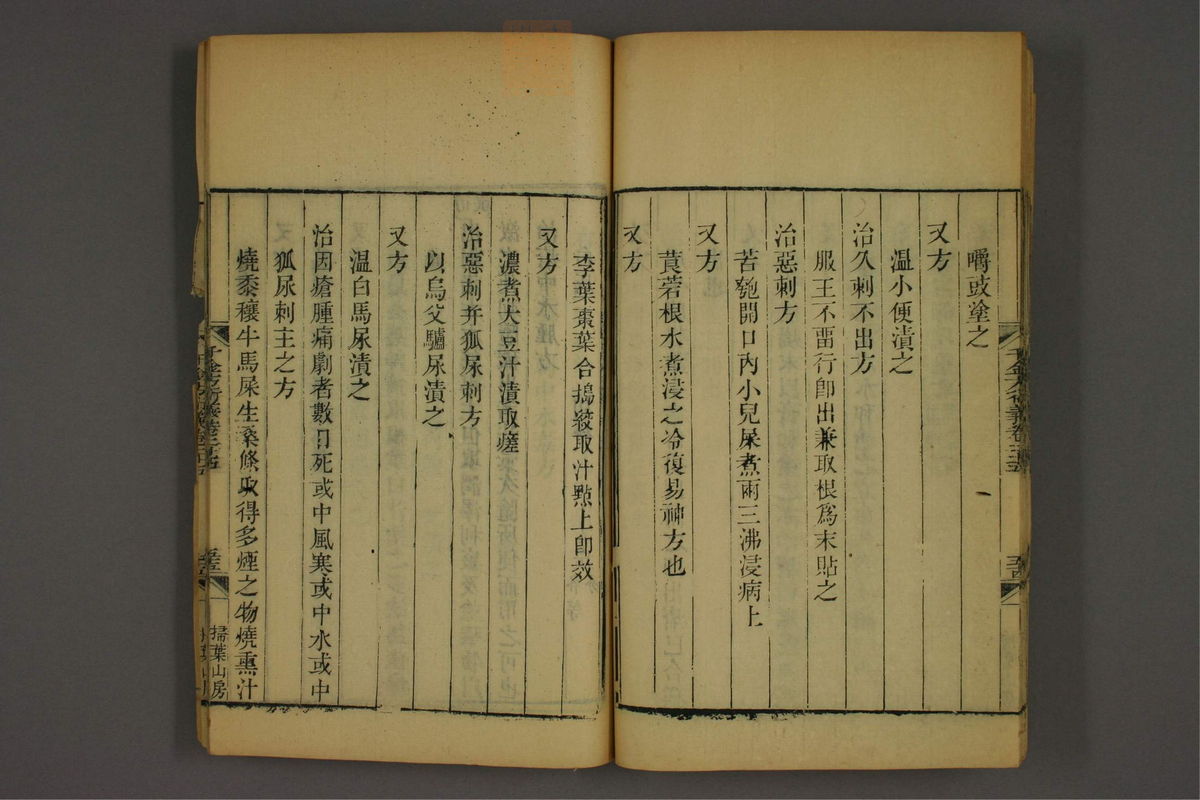 嚼豉塗之
又方
温小便漬之
治久刺不出方
服王不畱行卽出兼取根爲末貼之
治惡刺方
苦瓠開口內小兒屎煮兩三沸浸病上
又方
莨菪根水煮浸之冷復易神方也
又方
李葉棗葉合搗絞取汁㸃上卽效
又方
濃煮大豆汁漬取瘥
治惡刺并狐尿刺方
以烏父驢尿漬之
又方
温白馬尿漬之
治因瘡腫痛劇者數日死或中風寒或中水或中
狐尿刺主之方
燒黍穰牛馬屎生桑條取得多煙之物燒熏汁
千金方衍義卷二十五
掃葉山房